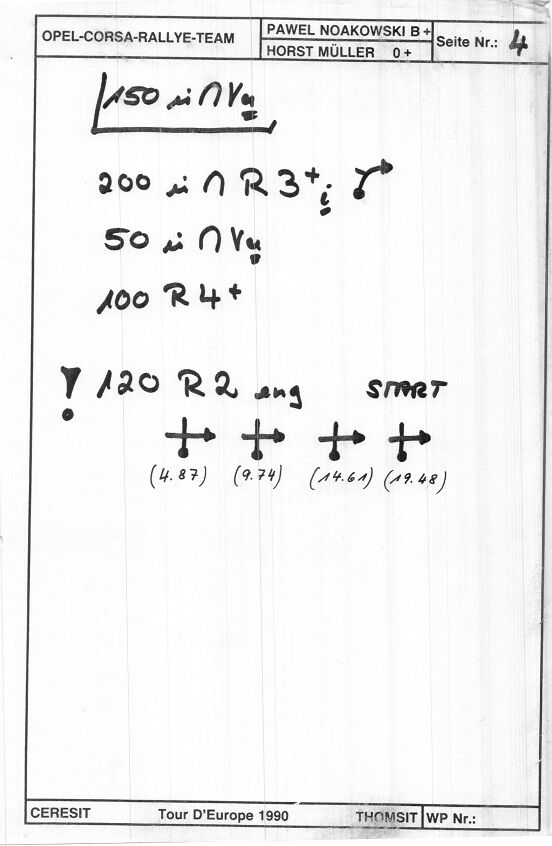 OPEL-CORSA-RALLYE-TEAM
PAWEL NOAKOWSKI B+
HORST MÜLLER 0+
Seite Nr.: 4
150 in ∩ Vu
200 in ∩ R 3+ i
50 in ∩ Vu
100 R 4+
! 120 R 2 eng START
(4.87) (9.74) (14.61) (19.48)
CERESIT Tour D'Europe 1990 THOMSIT WP Nr.: